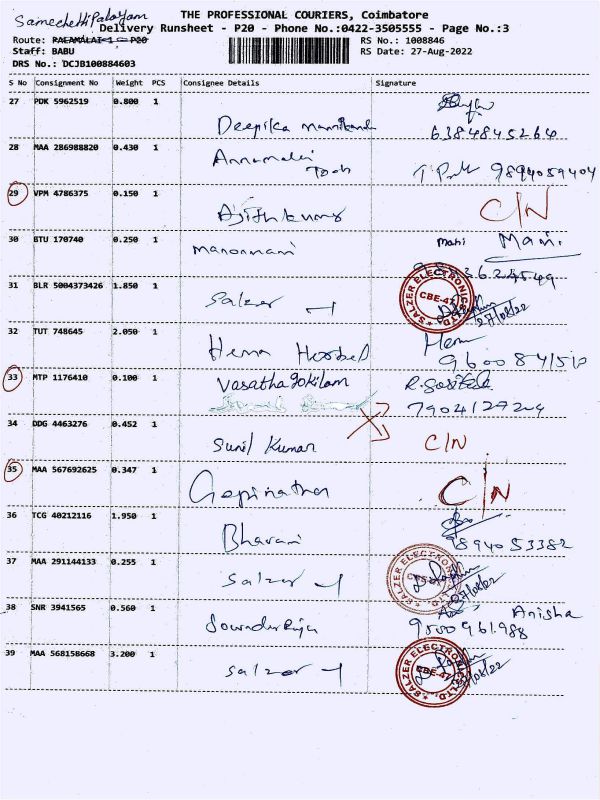 Samichettipalayam
THE PROFESSIONAL COURIERS, Coimbatore
Delivery Runsheet - P20 - Phone No.:0422-3505555 - Page No.:3
Route: PALAMALAI-1 - P20
RS No.: 1008846
Staff: BABU
RS Date: 27-Aug-2022
DRS No.: DCJB100884603
S No Consignment No Weight PCS Consignee Details Signature
27 PDK 5962519 0.800 1
Deepika 6384845264
28 MAA 286988820 0.430 1
Annamalai
Tooh 9894059404
29 VPM 4786375 0.150 1
Ajithkumar C/N
30 BTU 170740 0.250 1 mahi Mani.
manonmani
31 BLR 5004373426 1.850 1
SALZER ELECTRONICS LTD. CBE-47
Salzer 27/08/22
32 TUT 748645 2.050 1
Hema 9600841510
33 MTP 1176410 0.100 1
Vasathagokilam
7904127229
34 DDG 4463276 0.452 1
Sunil Kumar C/N
35 MAA 567692625 0.347 1
Gopinathan C/N
36 TCG 40212116 1.950 1
Bharani 9894053382
37 MAA 291144133 0.255 1
SALZER ELECTRONICS LTD.
Salzer
38 SNR 3941565 0.560 1 Anisha
9500961988
39 MAA 568158668 3.200 1
SALZER ELECTRONICS LTD. CBE-47
Salzer